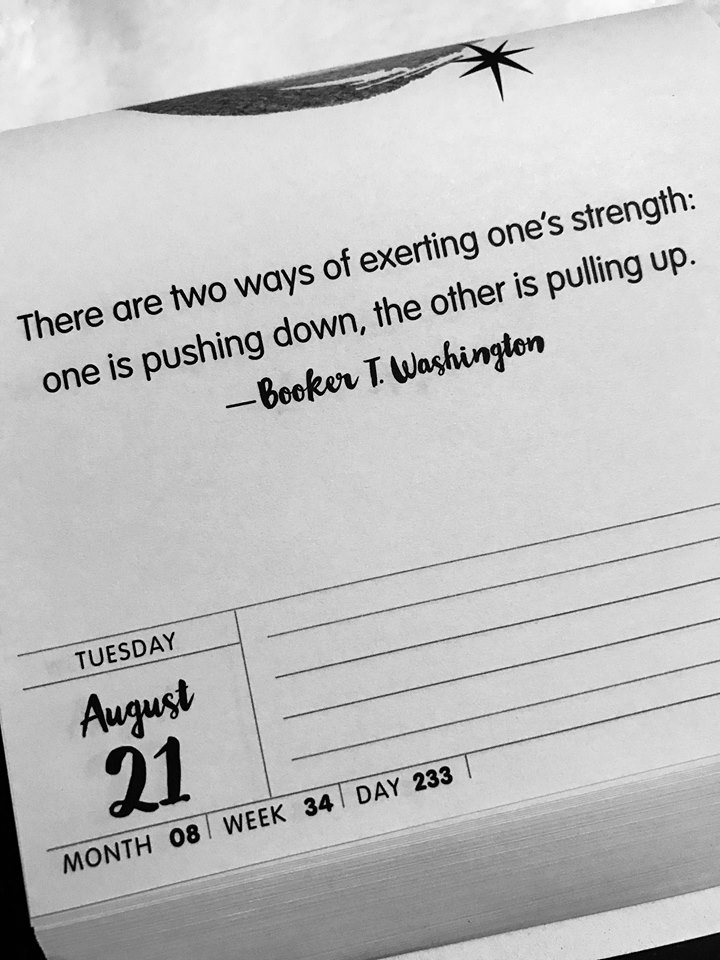 There are two ways of exerting one's strength:
one is pushing down, the other is pulling up.
—Booker T. Washington
TUESDAY
August
21
MONTH 08 | WEEK 34 | DAY 233 |